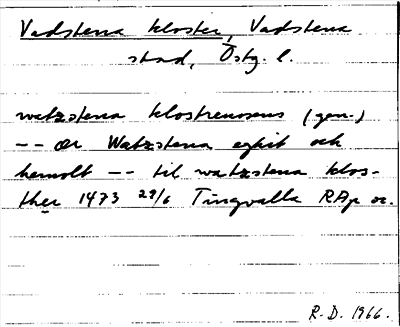 Vadstena kloster, Vadstena
stad, Östg. l.
watzstena klostrensens (gen.)
-- ær Watzstena eghit och
hemolt -- til watzstena klos-
ther 1473 29/6 Tingvalla RAp or.
R.D. 1966.